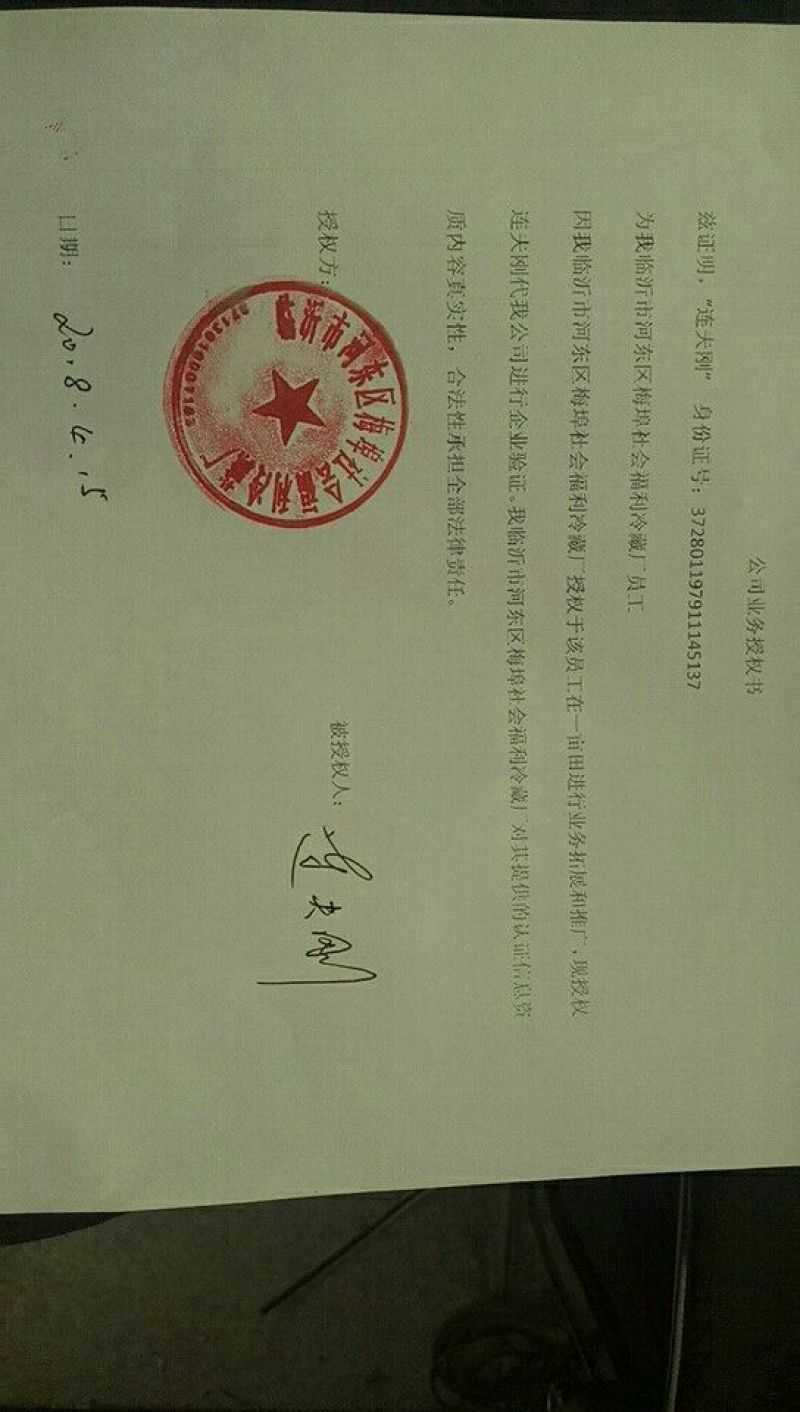 公司业务授权书
兹证明，“连夫刚” 身份证号：372801197911145137
为我临沂市河东区梅埠社会福利冷藏厂员工
因我临沂市河东区梅埠社会福利冷藏厂授权于该员工在一亩田进行业务拓展和推广，现授权
连夫刚代我公司进行企业验证。我临沂市河东区梅埠社会福利冷藏厂对其提供的认证信息资
质内容真实性，合法性承担全部法律责任。
授权方：
被授权人：连夫刚
临沂市河东区梅埠社会福利冷藏厂
日期：2018.4.15